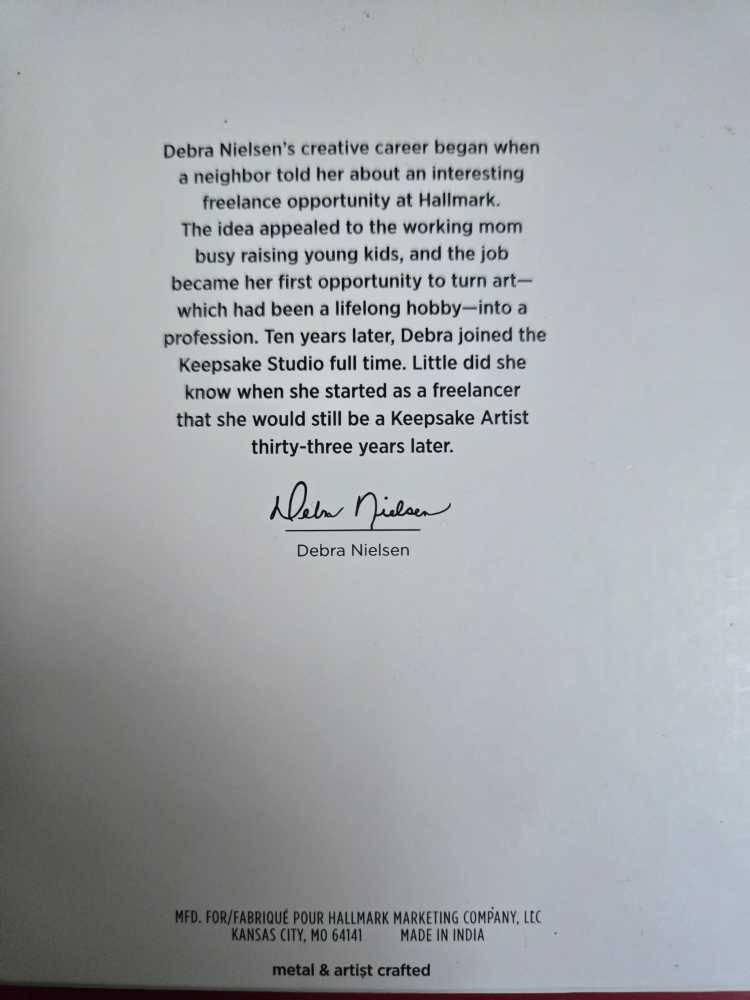 Debra Nielsen's creative career began when
a neighbor told her about an interesting
freelance opportunity at Hallmark.
The idea appealed to the working mom
busy raising young kids, and the job
became her first opportunity to turn art—
which had been a lifelong hobby—into a
profession. Ten years later, Debra joined the
Keepsake Studio full time. Little did she
know when she started as a freelancer
that she would still be a Keepsake Artist
thirty-three years later.
Debra Nielsen
Debra Nielsen
MFD. FOR/FABRIQUÉ POUR HALLMARK MARKETING COMPANY, LLC
KANSAS CITY, MO 64141 MADE IN INDIA
metal & artist crafted